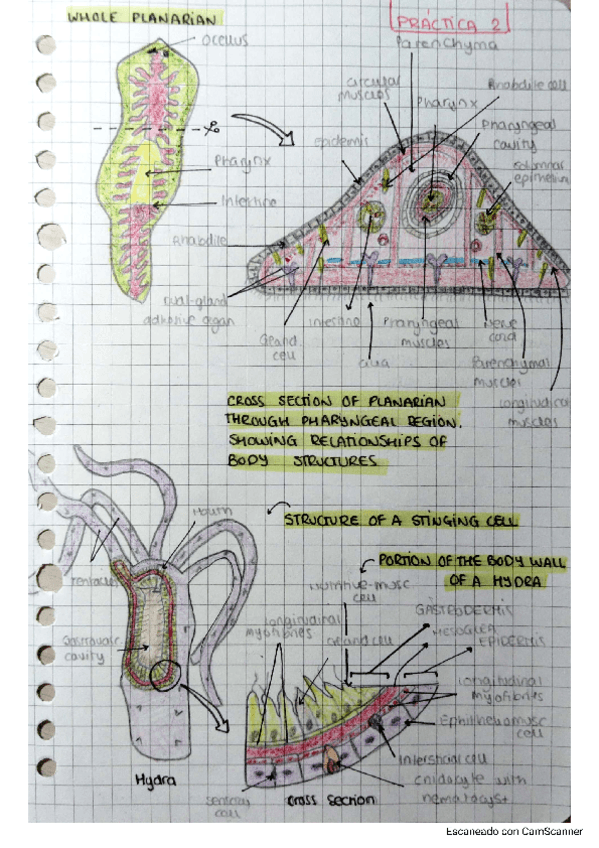 WHOLE PLANARIAN
PRÁCTICA 2
Ocellus
Parenchyma
circular
muscles
Rhabdite cell
Pharynx
Pharyngeal
cavity
epidermis
columnar
epithelium
Pharynx
Intestine
Rhabdite
Dual-gland
adhesive organ
Gland
cell
Intestine
cilia
Pharyngeal
muscles
Nerve
cord
Parenchymal
muscles
longitudinal
muscles
CROSS SECTION OF PLANARIAN
THROUGH PHARYNGEAL REGION.
SHOWING RELATIONSHIPS OF
BODY STRUCTURES
STRUCTURE OF A STINGING CELL
PORTION OF THE BODY WALL
OF A HYDRA
Mouth
Tentacles
Gastrovasc
cavity
Hydra
Nutritive-musc
cell
longitudinal
myofibres
Gland cell
GASTRODERMIS
MESOGLEA
EPIDERMIS
longitudinal
myofibres
Epitheliomusc
cell
Interstitial cell
cnidocyte with
nematocyst
sensory
cell
cross section
Escaneado con CamScanner